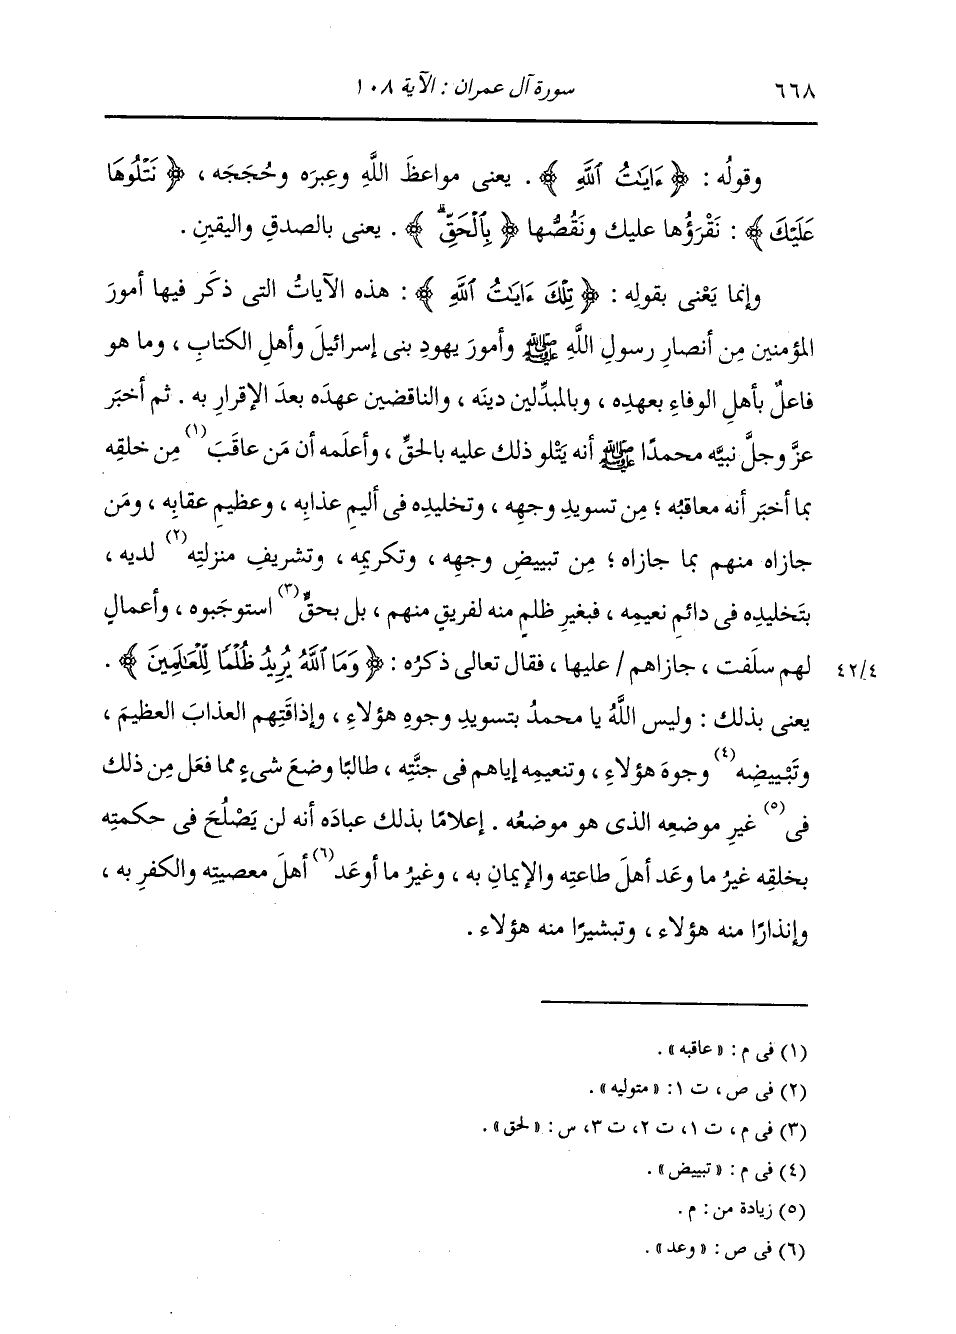 ٦٦٨
سورة آل عمران : الآية ١٠٨
وقولُه : ﴿ ءَايَٰتُ ٱللَّهِ ﴾ . يعنى مواعظَ اللَّهِ وعِبرَه وحُجَجَه ، ﴿ نَتْلُوهَا
عَلَيْكَ ﴾ : نَقْرَؤُها عليك ونَقُصُّها ﴿ بِٱلْحَقِّۗ ﴾ . يعنى بالصدقِ واليقينِ .
وإنما يَعْنى بقولِه : ﴿ تِلْكَ ءَايَٰتُ ٱللَّهِ ﴾ : هذه الآياتُ التى ذكَر فيها أمورَ
المؤمنين مِن أنصارِ رسولِ اللَّهِ ﷺ وأمورَ يهودِ بنى إسرائيلَ وأهلِ الكتابِ ، وما هو
فاعلٌ بأهلِ الوفاءِ بعهدِه ، وبالمبدِّلين دينَه ، والناقضين عهدَه بعدَ الإقرارِ به . ثم أخبَر
عزَّ وجلَّ نبيَّه محمدًا ﷺ أنه يَتْلو ذلك عليه بالحقِّ ، وأعلَمه أن مَن عاقَبَ (١) مِن خلقِه
بما أخبَر أنه معاقبُه ؛ مِن تسويدِ وجهِه ، وتخليدِه فى أليمِ عذابِه ، وعظيمِ عقابِه ، ومَن
جازاه منهم بما جازاه ؛ مِن تبييضِ وجهِه ، وتكريمِه ، وتشريفِ منزلتِه (٢) لديه ،
بتَخليدِه فى دائمِ نعيمِه ، فبغيرِ ظلمٍ منه لفريقٍ منهم ، بل بحقٍّ (٣) استوجَبوه ، وأعمالٍ
لهم سلَفت ، جازاهم / عليها ، فقال تعالى ذكرُه : ﴿ وَمَا ٱللَّهُ يُرِيدُ ظُلْمًا لِّلْعَٰلَمِينَ ﴾ .
٤٢/٤
يعنى بذلك : وليس اللَّهُ يا محمدُ بتسويدِ وجوهِ هؤلاءِ ، وإذاقَتِهم العذابَ العظيمَ ،
وتَبْييضِه (٤) وجوهَ هؤلاءِ ، وتنعيمِه إياهم فى جنَّتِه ، طالبًا وضعَ شىءٍ مما فعَل مِن ذلك
فى (٥) غيرِ موضعِه الذى هو موضعُه . إعلامًا بذلك عبادَه أنه لن يَصْلُحَ فى حكمتِه
بخلقِه غيرُ ما وعَد أهلَ طاعتِه والإيمانِ به ، وغيرُ ما أوعَد (٦) أهلَ معصيتِه والكفرِ به ،
وإنذارًا منه هؤلاء ، وتبشيرًا منه هؤلاء .
(١) فى م : « عاقبه » .
(٢) فى ص ، ت ١ : « متوليه » .
(٣) فى م ، ت ١ ، ت ٢ ، ت ٣ ، س : « لحق » .
(٤) فى م : « تبييض » .
(٥) زيادة من : م .
(٦) فى ص : « وعد » .